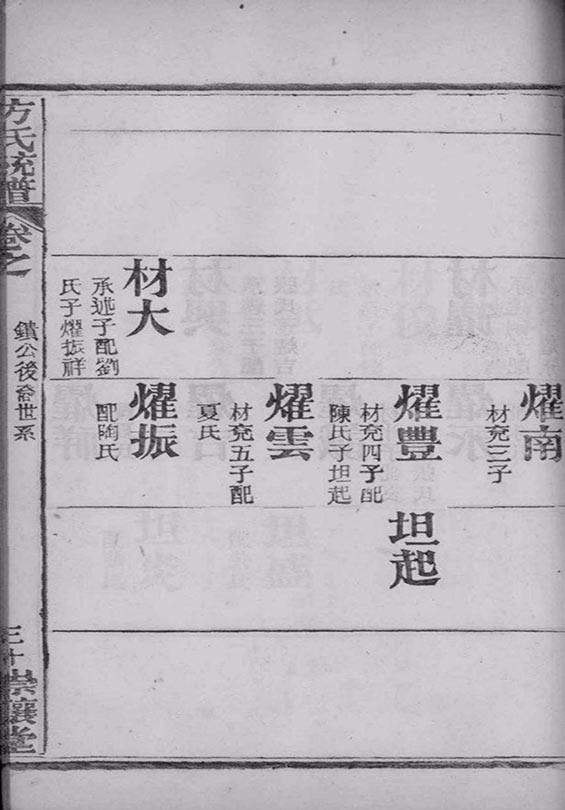 燿南
材兖三子
燿豐
材兖四子配
陳氏子坦起
坦起
燿雲
材兖五子配
夏氏
材大
承述子配劉
氏子燿振祥
燿振
配陶氏
方氏統譜
卷之
鐀公後裔世系
三十
崇讓堂